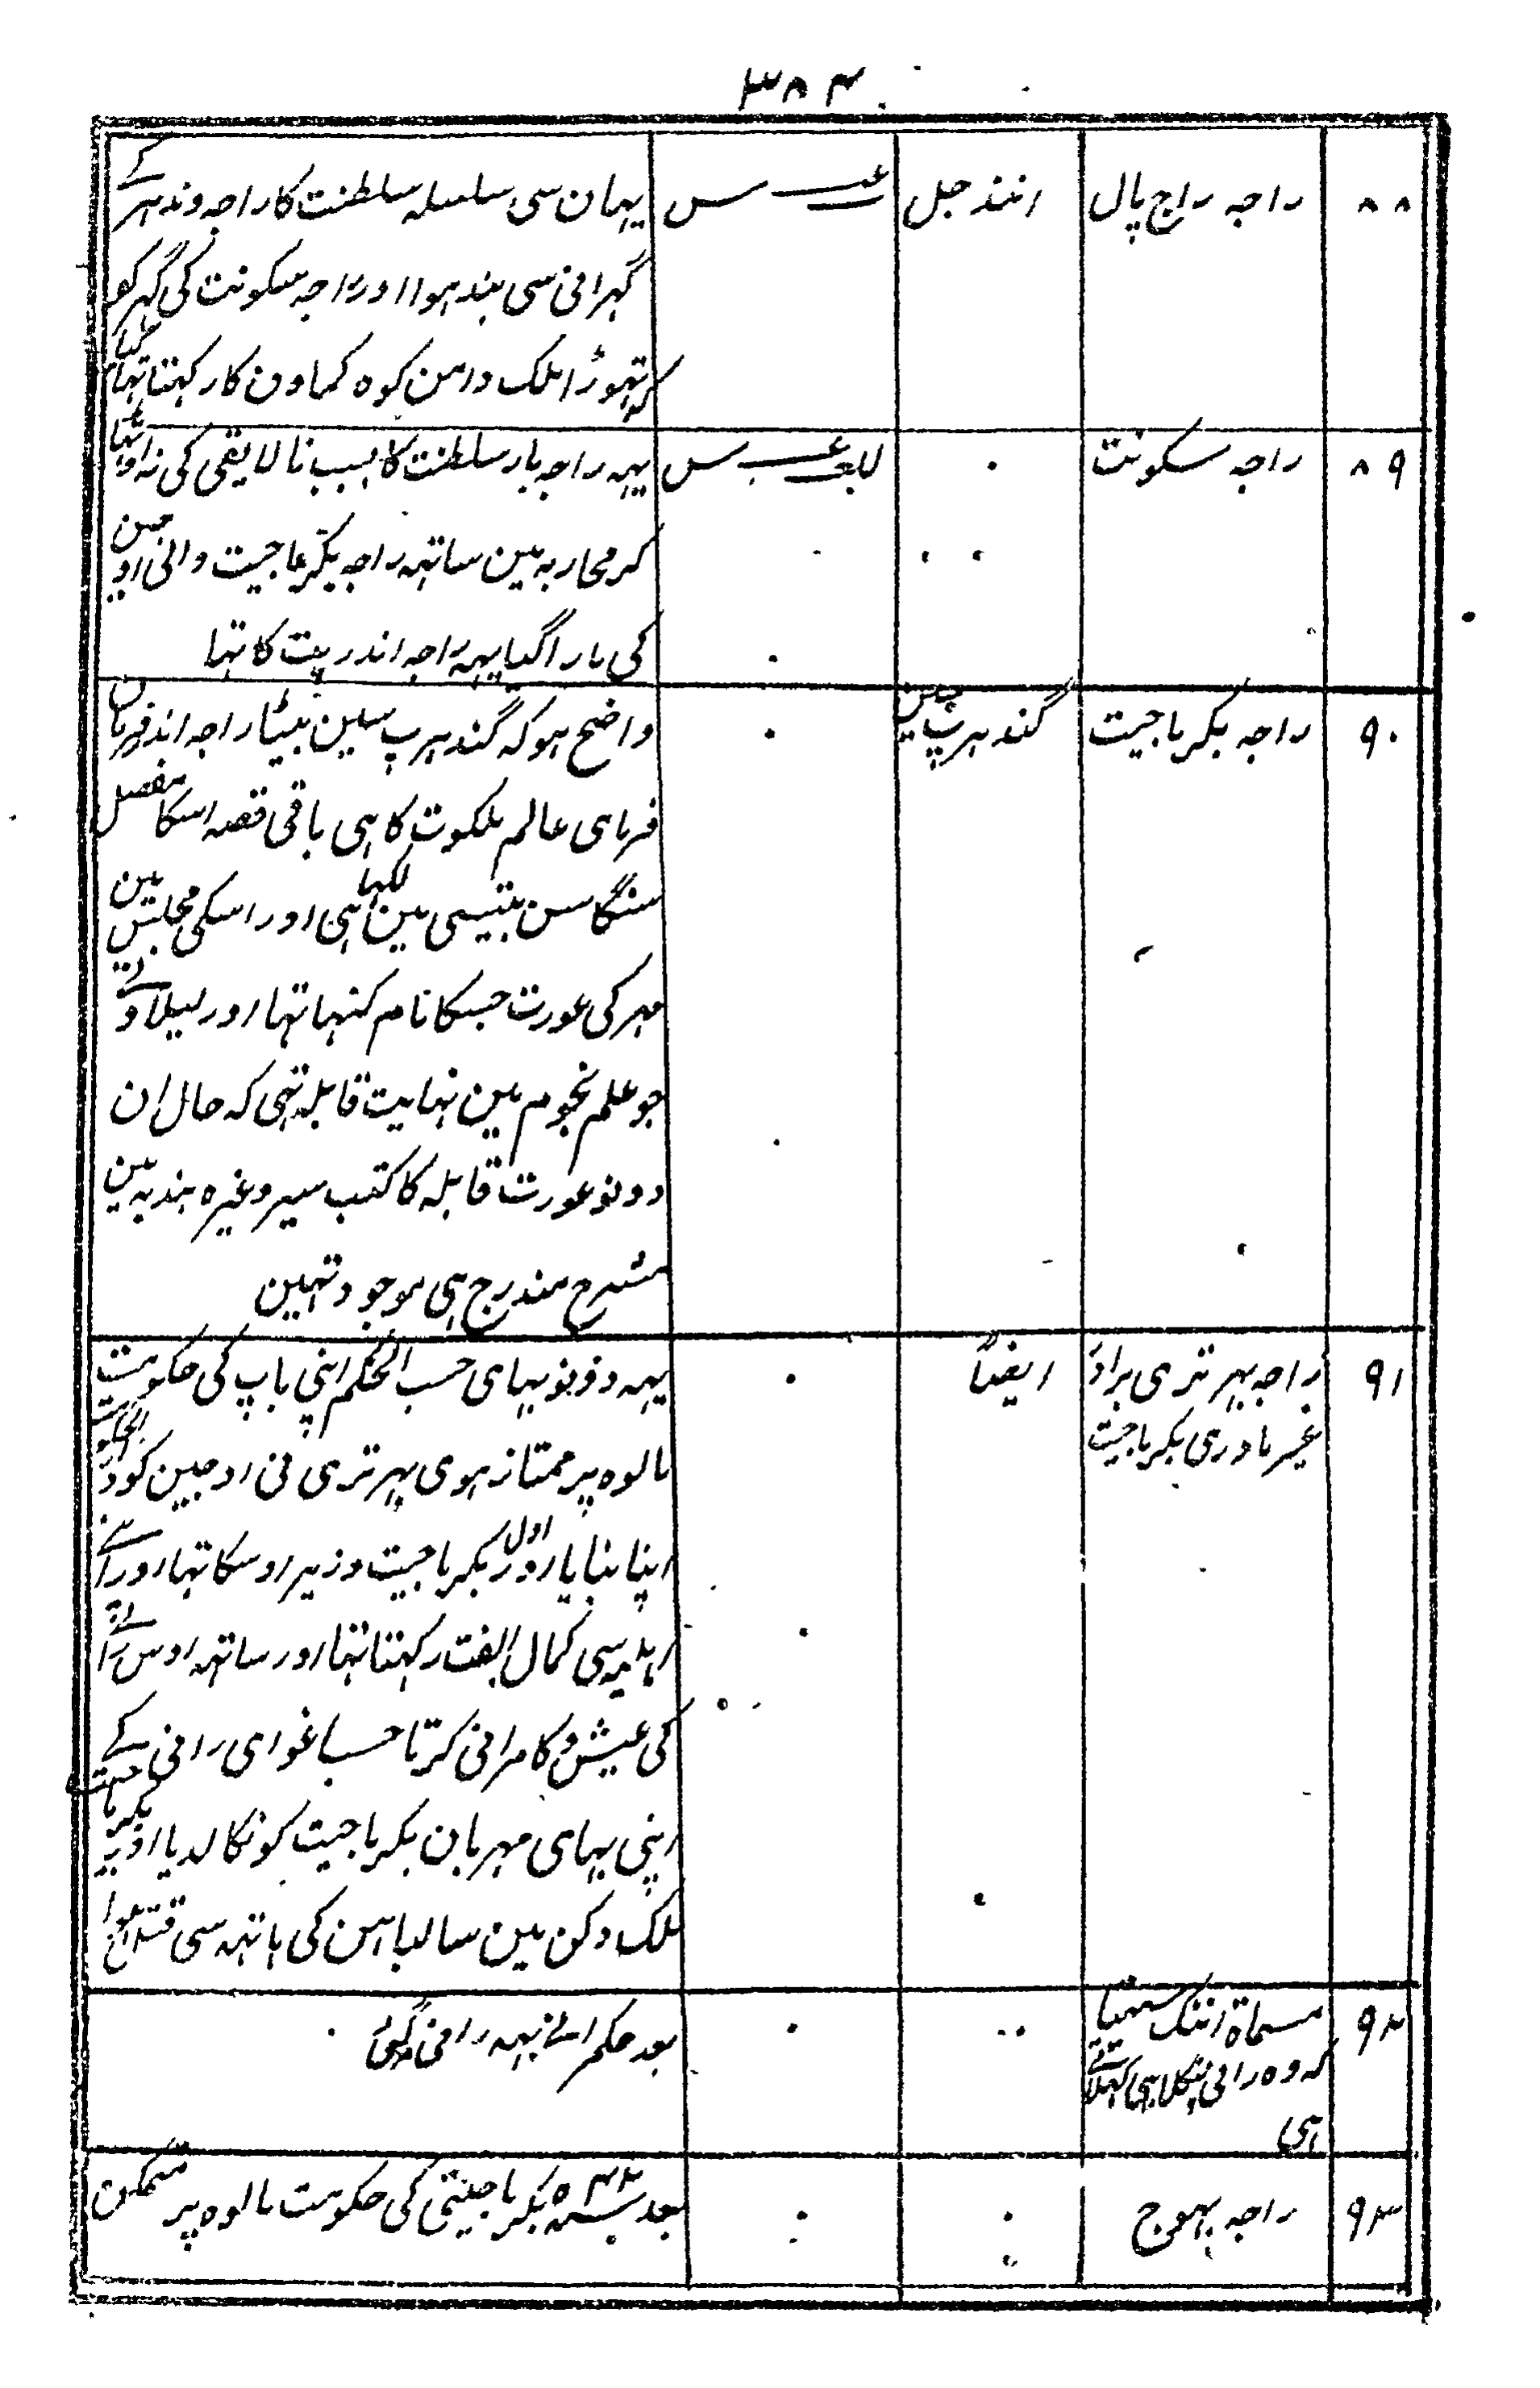 ۳۸۴
۸۸ راجہ راج پال انند جل یہان سی سلسلہ سلطنت کا راجہ وندہر کے
گہرانی سی بند ہوا اور راجہ سکونت کی گہر کو گیا
کہ تہوڑا ملک دامن کوہ کماون کا رکہتا تہا
۸۹ راجہ سکونت ۰ یہہ راجہ بار سلطنت کا بسبب نالایقی کی نہ اوٹہا
کر محاربہ مین ساتہہ راجہ بکرماجیت والی اوجین
کی مارا گیا یہہ راجہ اندرپت کا تہا
۹۰ راجہ بکرماجیت گندہرپ سین ۰ واضح ہو کہ گندہرپ سین بیٹا راجہ اندر فرمان
فرمای عالم ملکوت کا ہی باقی قصہ اسکا مفصل
سنگاسن بتیسی مین لکہا ہی اور اسکی مجلس مین
مہر کی عورت جسکا نام کنہا تہا اور لیلاوتے
جو علم نجوم مین نہایت قابلہ تہی کہ حال ان
دونو عورت قابلہ کا کتب سیر وغیرہ ہندیہ مین
مشرح مندرج ہی موجود تہین
۹۱ راجہ بہرتری برادر ایضاً ۰ یہہ دونو بہای حسب الحکم اپنی باپ کی حکومت
غیر مادری بکرماجیت
مالوہ پر ممتاز ہوی بہرتری نی اوجین کو دار الحکومت
اپنا بنایا اور اول بکرماجیت وزیر اوسکا تہا اور اپنے
اہلیہ سی کمال الفت رکہتا تہا اور ساتہہ اوس رانے
کی عیش و کامرانی کرتا حسب اغوای رانی کے
اپنی بہای مہربان بکرماجیت کو نکالدیا اور بکرماجیت
ملک دکن مین سالباہن کی ہاتہہ سی قتل ہوا
۹۲ مسماة اننگ سینا ۰ ۰ بعد حکمرانے یہہ رانی ہوئی
کہ وہ رانی پنگلا بہی کہلاتے
ہی
۹۳ راجہ بہوج ۰ ۰ بعد سمہ ۵۴۲ بکرماجیتی کی حکومت مالوہ پر متمکن